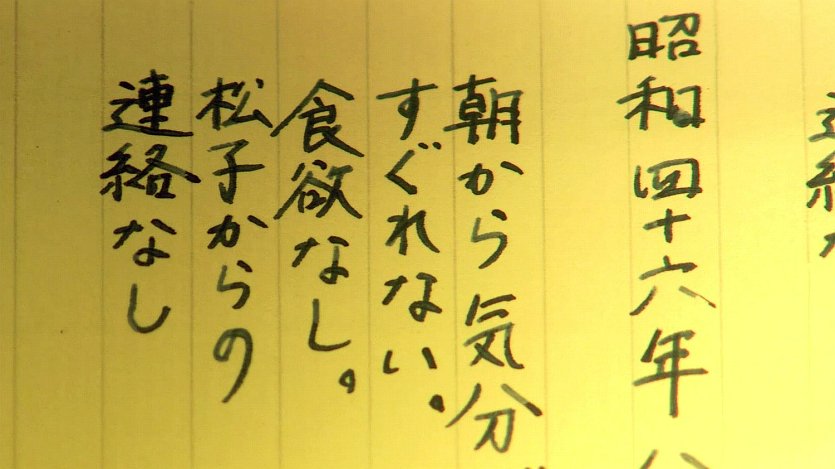 昭和四十六年八
朝から気分
すぐれない。
食欲なし。
松子からの
連絡なし